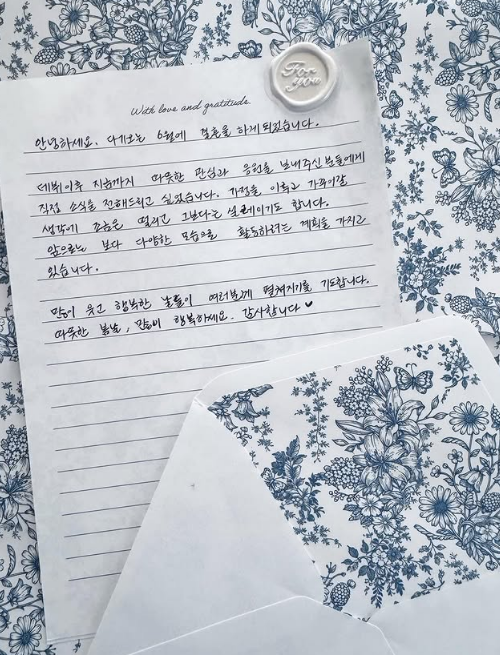 For
you
With love and gratitude.
안녕하세요. 다가오는 6월에 결혼을 하게 되었습니다.
데뷔 이후 지금까지 따뜻한 관심과 응원을 보내주신 분들에게
직접 소식을 전해드리고 싶었습니다. 가정을 이루고 가꾸어갈
생각에 조금은 떨리고 그보다는 설레이기도 합니다.
앞으로는 보다 다양한 모습으로 활동하려는 계획을 가지고
있습니다.
많이 웃고 행복한 날들이 여러분께 펼쳐지기를 기도합니다.
따뜻한 봄날, 많이 행복하세요. 감사합니다 ♥